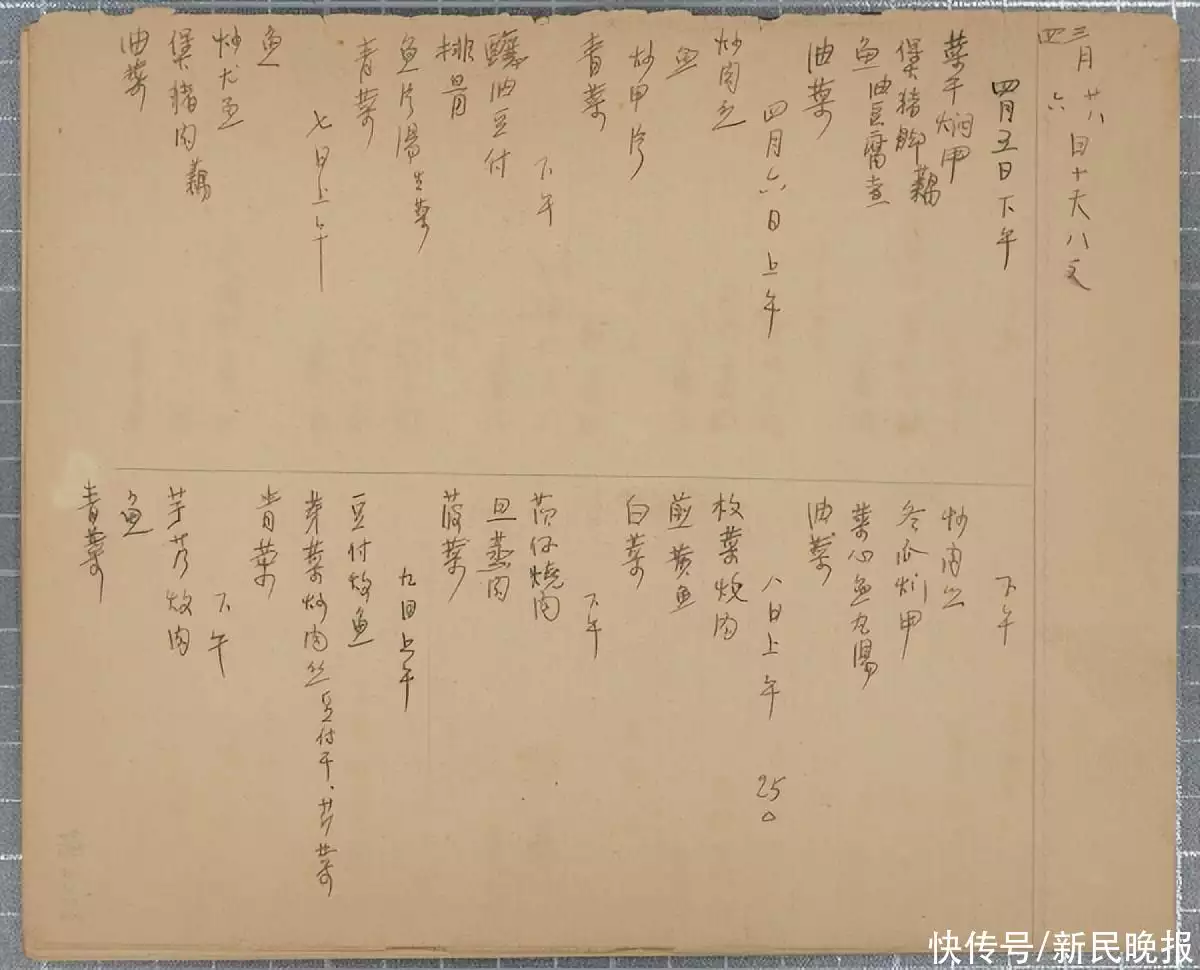 三月廿八日十天八文
四 六
四月五日下午
菜干焖甲
煲猪脚藕
鱼油豆腐煮
油菜
四月六日上午
炒肉乞
鱼
炒甲片
青菜
下午
釀油豆付
排骨
鱼片湯生菜
青菜
七日上午
鱼
炒尤乞
煲猪肉藕
油菜
下午
炒肉乞
冬瓜炆甲
菜心鱼丸湯
油菜
八日上午 250
梅菜烧肉
煎黄鱼
白菜
下午
茄仔燒肉
旦蒸肉
菠菜
九日上午
豆付炆鱼
芽菜炒肉丝豆付干、芹菜
青菜
下午
芋艿炆肉
鱼
青菜
快传号/新民晚报